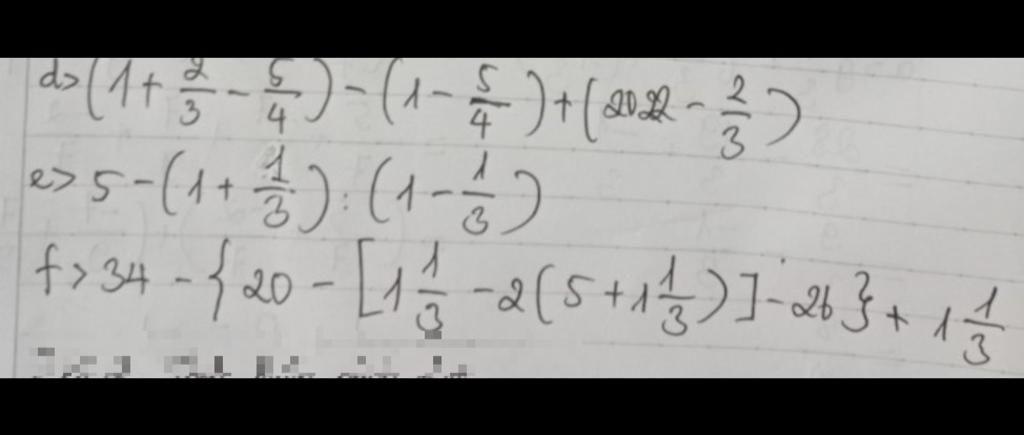 d> (1 + 2/3 - 5/4) - (1 - 5/4) + (2022 - 2/3)
e> 5 - (1 + 1/3) : (1 - 1/3)
f> 34 - { 20 - [1 1/3 - 2(5 + 1 1/3)] - 26 } + 1 1/3